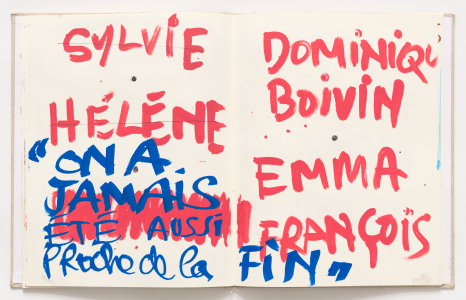 SYLVIE
HÉLÈNE
"ON A
JAMAIS
ÉTÉ AUSSI
PROCHE de la FIN"
DOMINIQU
BOIVIN
EMMA
FRANÇOIS